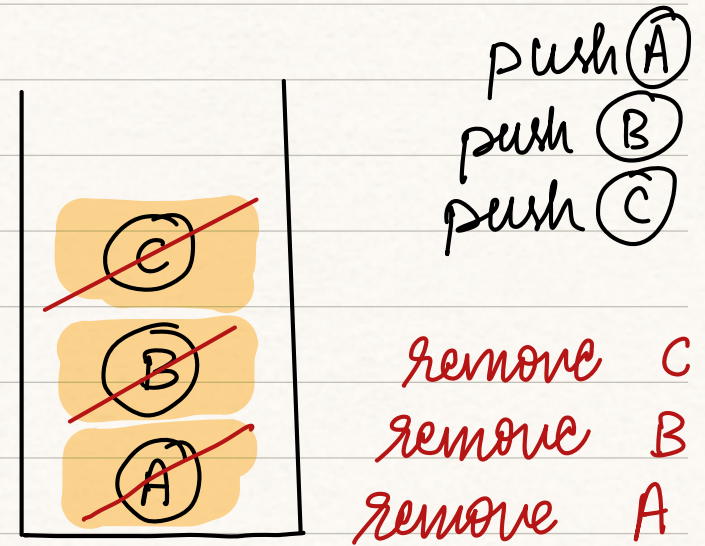 push A
push B
push C
C
B
A
remove C
remove B
remove A